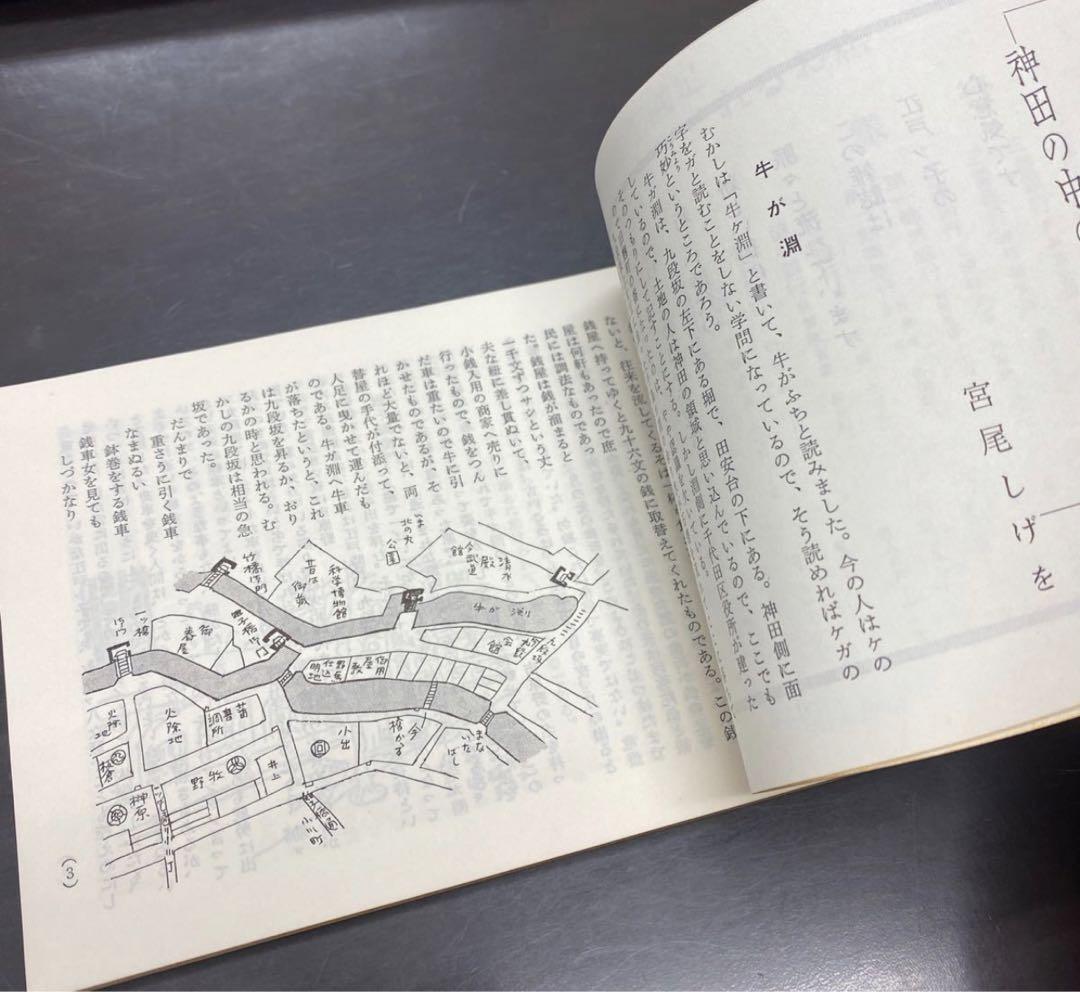 神田の中の
宮尾しげを
牛が淵
むかしは「牛ケ淵」と書いて、牛がふちと読みました。今の人はヶの
字をガと読むことをしない学問になっているので、そう読めればケガの
巧妙というところであろう。
こうみょう
牛ガ淵は、九段坂の左下にある堀で、田安台の下にある。神田側に面
しているので、土地の人は神田の領域と思い込んでいるので、ここでも
そのつもりにして記すことにする。しかし淵側に千代田区役所が建った
ないと、往来を流してくる
銭屋へ持ってゆくと九十六文の銭に取替えてくれたものである。この銭
屋は何軒もあったので庶
民には調法なものであっ
た。銭屋は銭が溜まると
一千文ずつサシという丈
夫な紐に差し貫ぬいて、
小銭入用の商家へ売りに
行ったもので、銭をつん
だ車は重たいので牛に引
かせたものであるが、そ
れほど大量でないと、両
替屋の手代が付添って、
人足に曳かせて運んだも
のである。牛ガ淵へ牛車
が落ちたというと、これ
は九段坂を昇るか、おり
るかの時と思われる。む
かしの九段坂は相当の急
坂であった。
だんまりで
重さうに引く銭車
なまぬるい
鉢巻をする銭車
銭車女を見ても
しづかなり
竹橋御門
昔は
御蔵
科学博物館
いま
北の丸
公園
今武道館
清水殿
牛が渕
九段坂
会館
一ッ橋
御門
御春屋
雉子橋御門
御用屋敷
明地
火除地
火除地
蕃書調所
小出
今
俎かる
まないたばし
板倉
野牧
井上
榊原
小川町
(3)